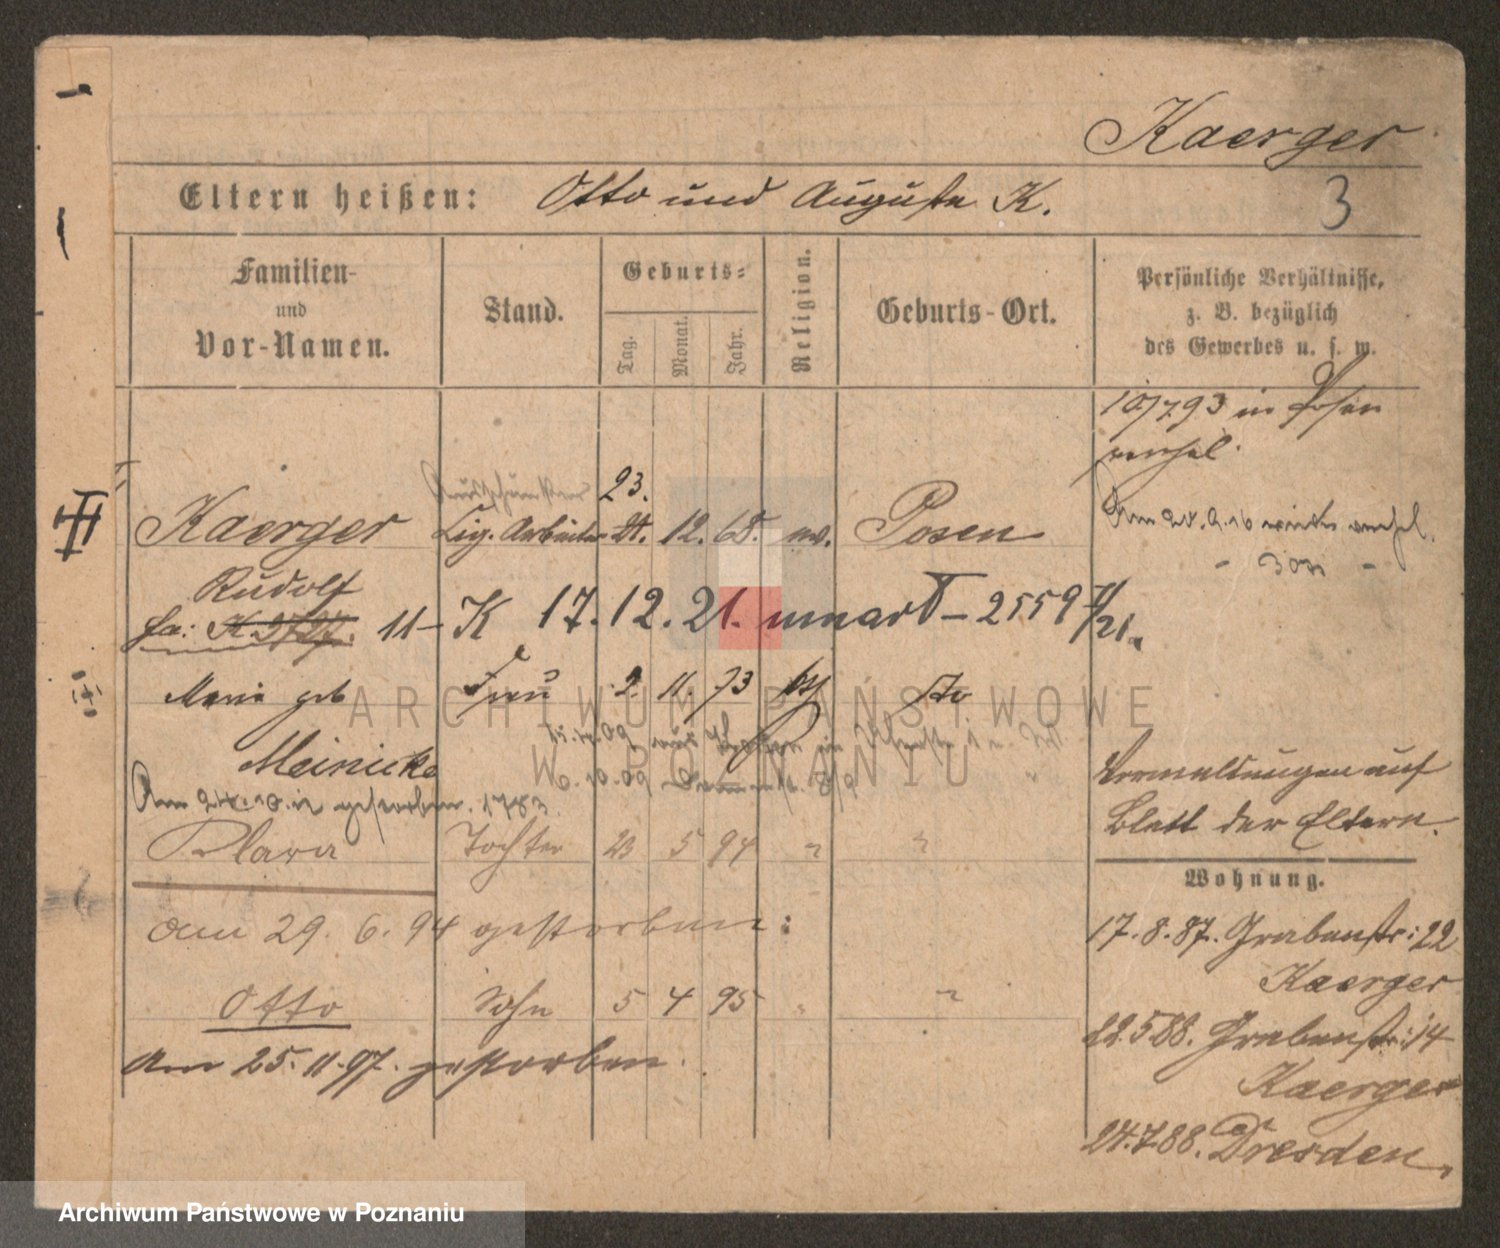 Kaerger
Eltern heißen: Otto und Auguste K.
3
Familien-
und
Vor-Namen.
Stand.
Geburts-
Tag.
Monat.
Jahr.
Religion.
Geburts-Ort.
Persönliche Verhältnisse,
z. B. bezüglich
des Gewerbes u. s. w.
10/7 93 in Posen
verhel.
23.
Kaerger Cig. Arbeiter 12. 68. ev. Posen
Rudolf
11- K 17. 12. 21. 2559
Marie geb Frau 2. 11. 73 dto
Meinicke
Am 24.10.12 gestorben. 1783.
Klara Tochter 23 5 94 "
am 29. 6. 94 gestorben:
Otto Sohn 5 4 95 "
Am 25. 11. 97. gestorben.
Am 20.9.16 wieder verhel.
Vermaldungen auf
Blatt der Eltern.
Wohnung.
17. 8. 87. Grabenstr: 22
Kaerger
22.5.88. Grabenstr: 14
Kaerger
24.7.88. Dresden.
ARCHIWUM PAŃSTWOWE
W POZNANIU
Archiwum Państwowe w Poznaniu